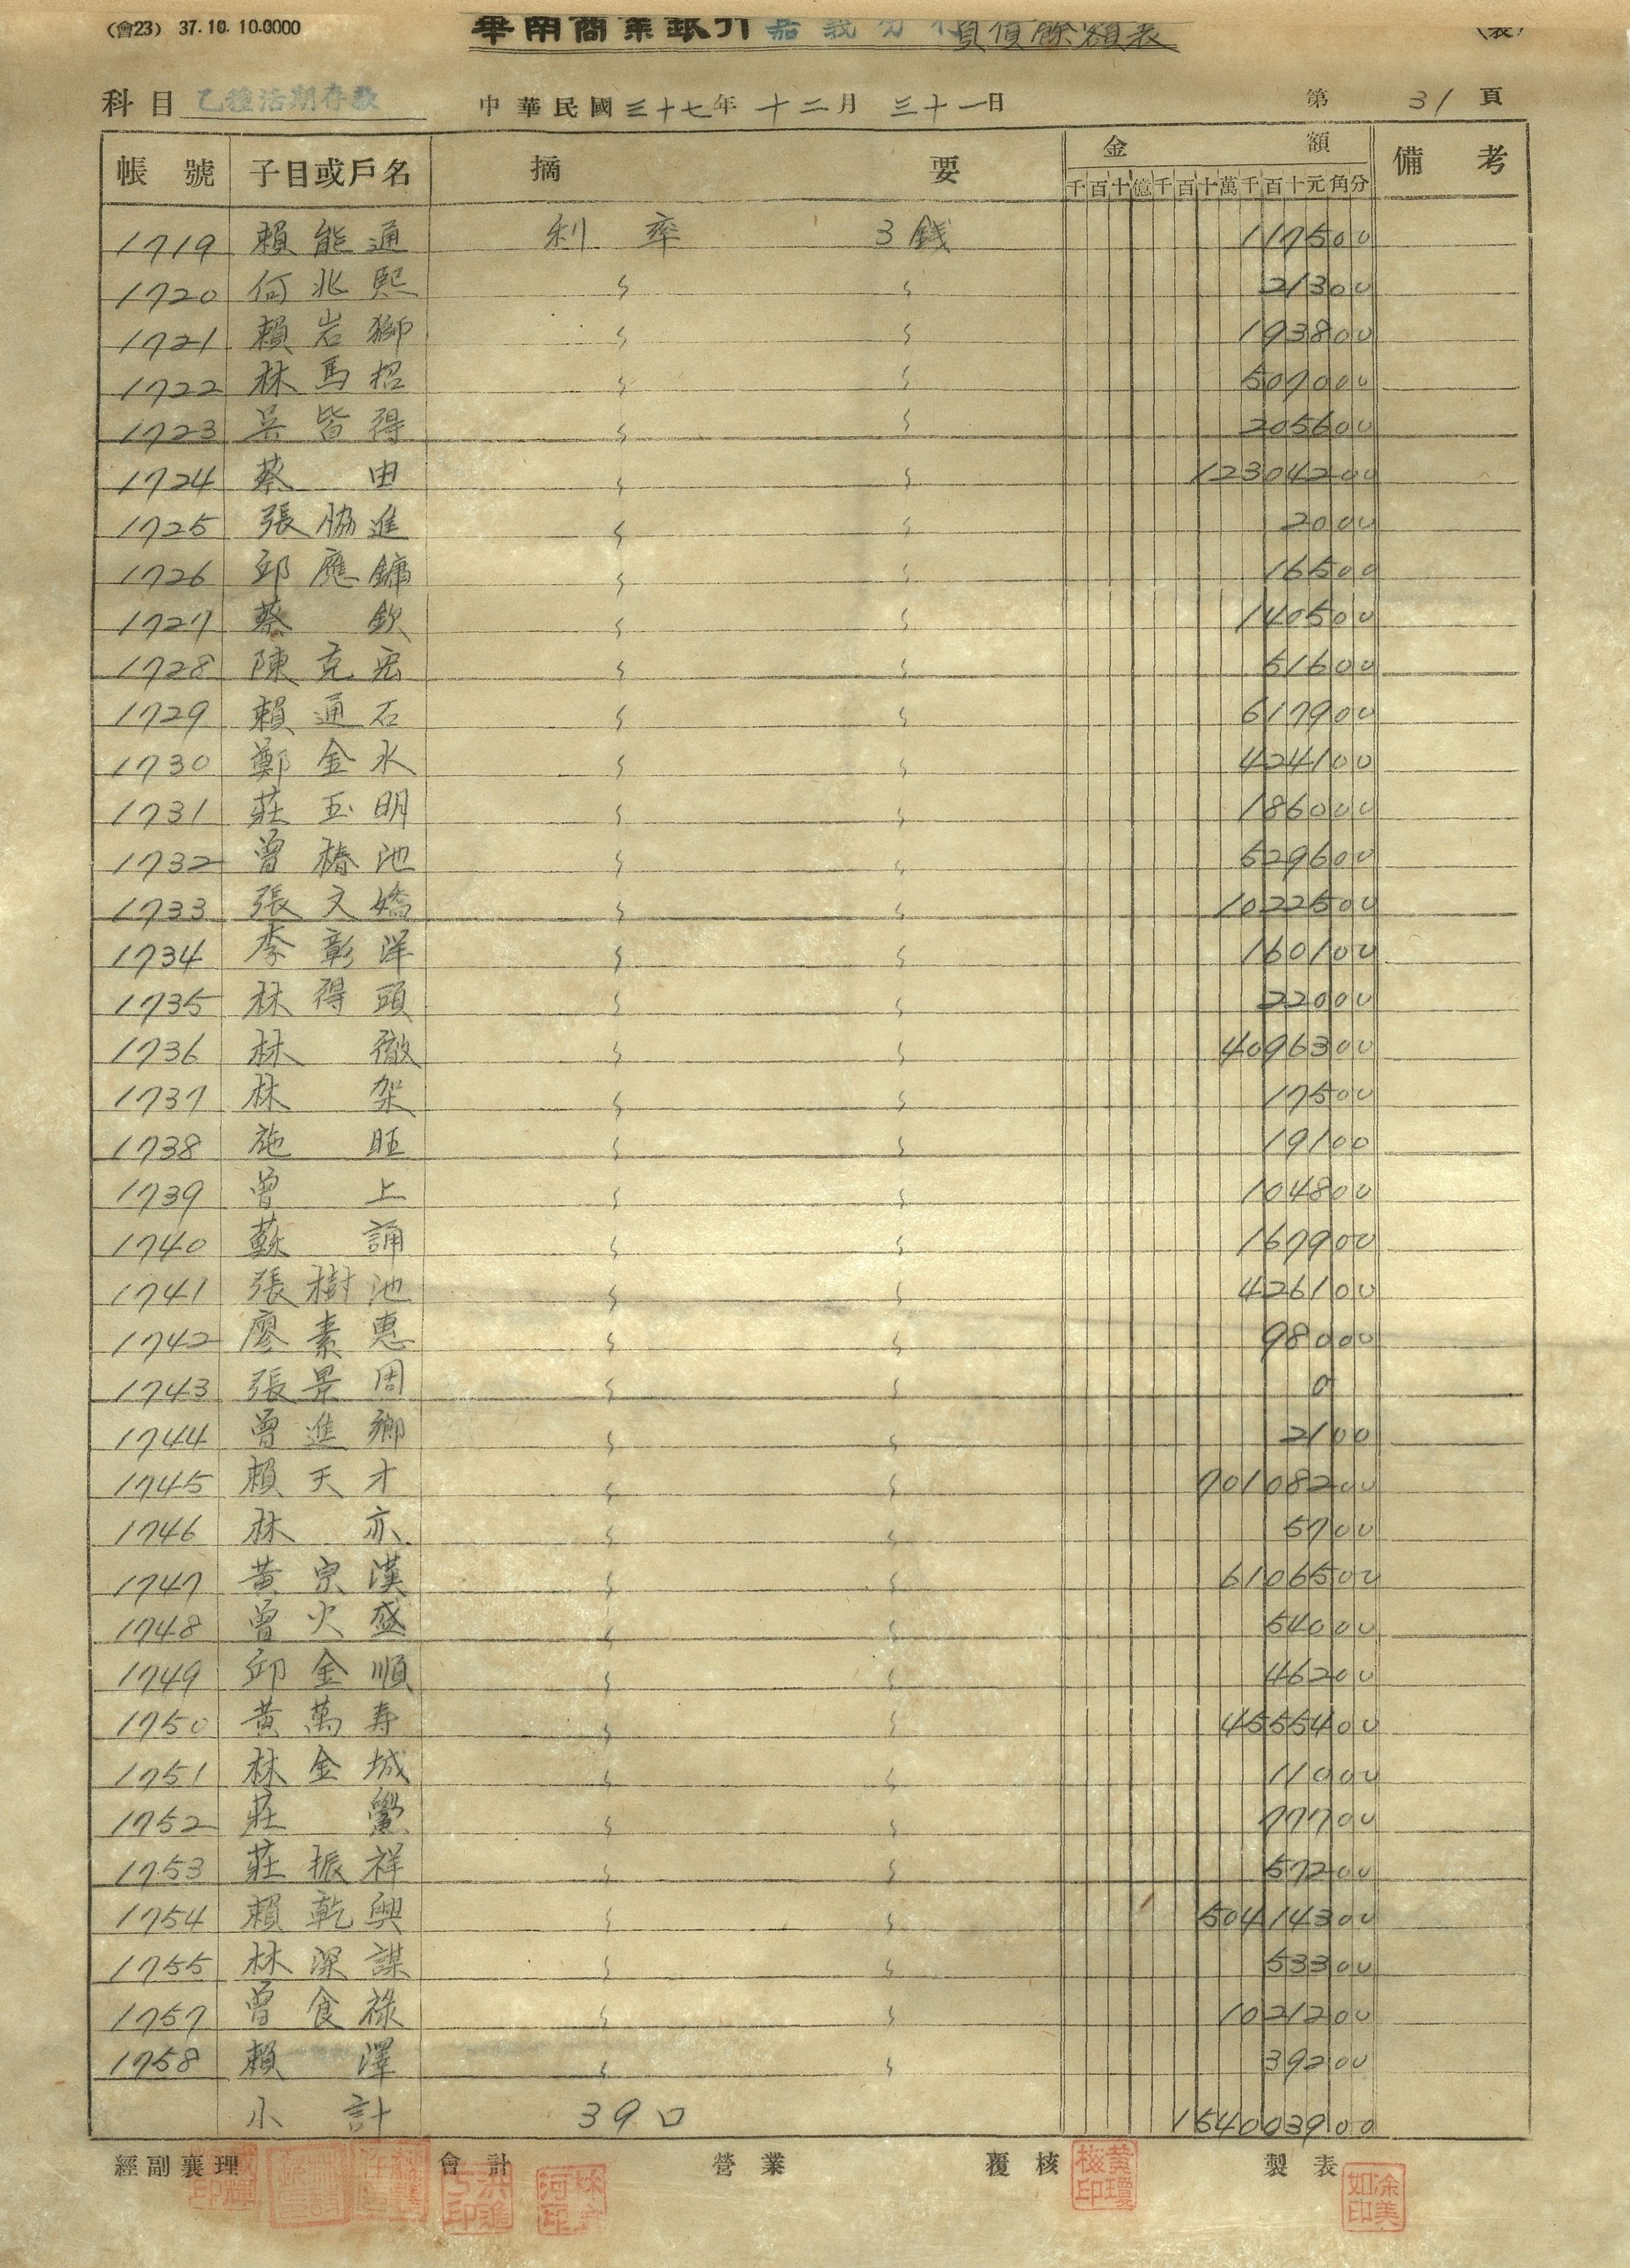 (會23) 37.10.10.0000 華南商業銀行 嘉義分行 負債餘額表 (表)
科目 乙種活期存款 中華民國三十七年十二月三十一日 第31頁
帳號 子目或戶名 摘要 金額 備考
千百十億千百十萬千百十元角分
1719 賴能通 利率 3錢 117500
1720 何兆熙 〃 〃 21300
1721 賴岩獅 〃 〃 193800
1722 林馬招 〃 〃 507000
1723 吳皆得 〃 〃 205600
1724 蔡由 〃 〃 12304200
1725 張協進 〃 〃 2000
1726 邱應鏞 〃 〃 16500
1727 蔡欽 〃 〃 140500
1728 陳克宏 〃 〃 51600
1729 賴通石 〃 〃 617900
1730 鄭金水 〃 〃 424100
1731 莊玉明 〃 〃 186000
1732 曾椿池 〃 〃 529600
1733 張文嬌 〃 〃 1022500
1734 李彰洋 〃 〃 160100
1735 林得頭 〃 〃 22000
1736 林徹 〃 〃 4096300
1737 林架 〃 〃 17500
1738 施旺 〃 〃 19100
1739 曾上 〃 〃 104800
1740 蘇誦 〃 〃 167900
1741 張樹池 〃 〃 426100
1742 廖素惠 〃 〃 98000
1743 張景周 〃 〃 0
1744 曾進鄉 〃 〃 2100
1745 賴天才 〃 〃 70108200
1746 林亦 〃 〃 5700
1747 黃宗漢 〃 〃 6106500
1748 曾火盛 〃 〃 54000
1749 邱金順 〃 〃 46200
1750 黃萬寿 〃 〃 4555400
1751 林金城 〃 〃 11000
1752 莊 〃 〃 77700
1753 莊振祥 〃 〃 57200
1754 賴乾興 〃 〃 50414300
1755 林深謀 〃 〃 53300
1757 曾食祿 〃 〃 1021200
1758 賴澤 〃 〃 39200
小計 39口 154003900
經副襄理 會計 營業 覆核 製表
黃瓊極印 涂美如印